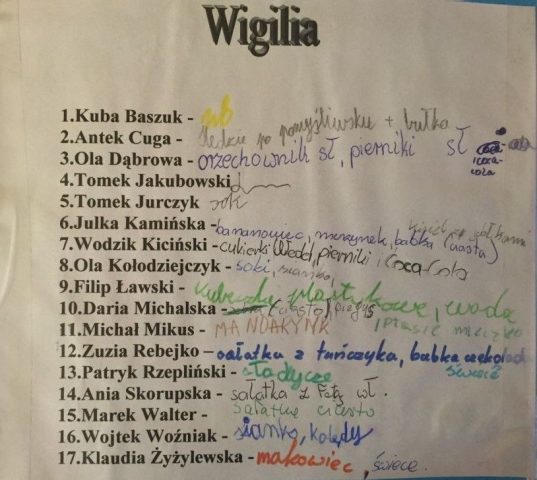 Wigilia
1.Kuba Baszuk -
2.Antek Cuga - śledzie po pomyśliwsku + bułka
3.Ola Dąbrowa - orzechownik sł, pierniki sł coca-cola
4.Tomek Jakubowski
5.Tomek Jurczyk sok
6.Julka Kamińska - bananowiec, murzynek, babka (ciasta)
7.Wodzik Kiciński - cukierki Wedel, pierniki i Coca-Cola
8.Ola Kołodziejczyk - soki, sianko,
9.Filip Ławski - kubeczki plastykowe, woda
10.Daria Michalska - (ciasto) pierogi
11.Michał Mikus - MANDARYNK ptasie mleczko
12.Zuzia Rebejko – sałatka z tuńczyka, babka czekolad
13.Patryk Rzepliński - słodycze świece
14.Ania Skorupska - sałatka z Fetą wł.
15.Marek Walter - sałatkę ciasto
16.Wojtek Woźniak - sianko, kolędy
17.Klaudia Żyżylewska - makowiec, świece.